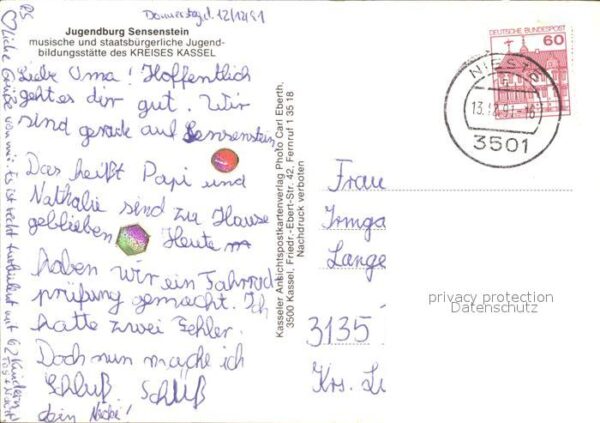 Donnerstag d. 12/12/91
Jugendburg Sensenstein
musische und staatsbürgerliche Jugend-
bildungsstätte des KREISES KASSEL
Liebe Oma! Hoffentlich
geht es dir gut. Wir
sind gerade auf Sensenstein
Das heißt Papi und
Nathalie sind zu Hause
geblieben Heute
haben wir ein Fahrrad
prüfung gemacht. Ich
hatte zwei Fehler.
Doch nun mache ich
Schluß. Schluß
dein
PS
Liebe Grüße von mir. Es ist recht turbulent mit 62 Kindern
Tag + Nacht
Kasseler Ansichtspostkartenverlag Photo Carl Eberth,
3500 Kassel, Friedr.-Ebert-Str. 42, Fernruf 1 35 18
Nachdruck verboten
DEUTSCHE BUNDESPOST
60
NIESTE
13.12.91-16
3501
Frau
Irmga
Lange
3135
Krs. Lü
privacy protection
Datenschutz